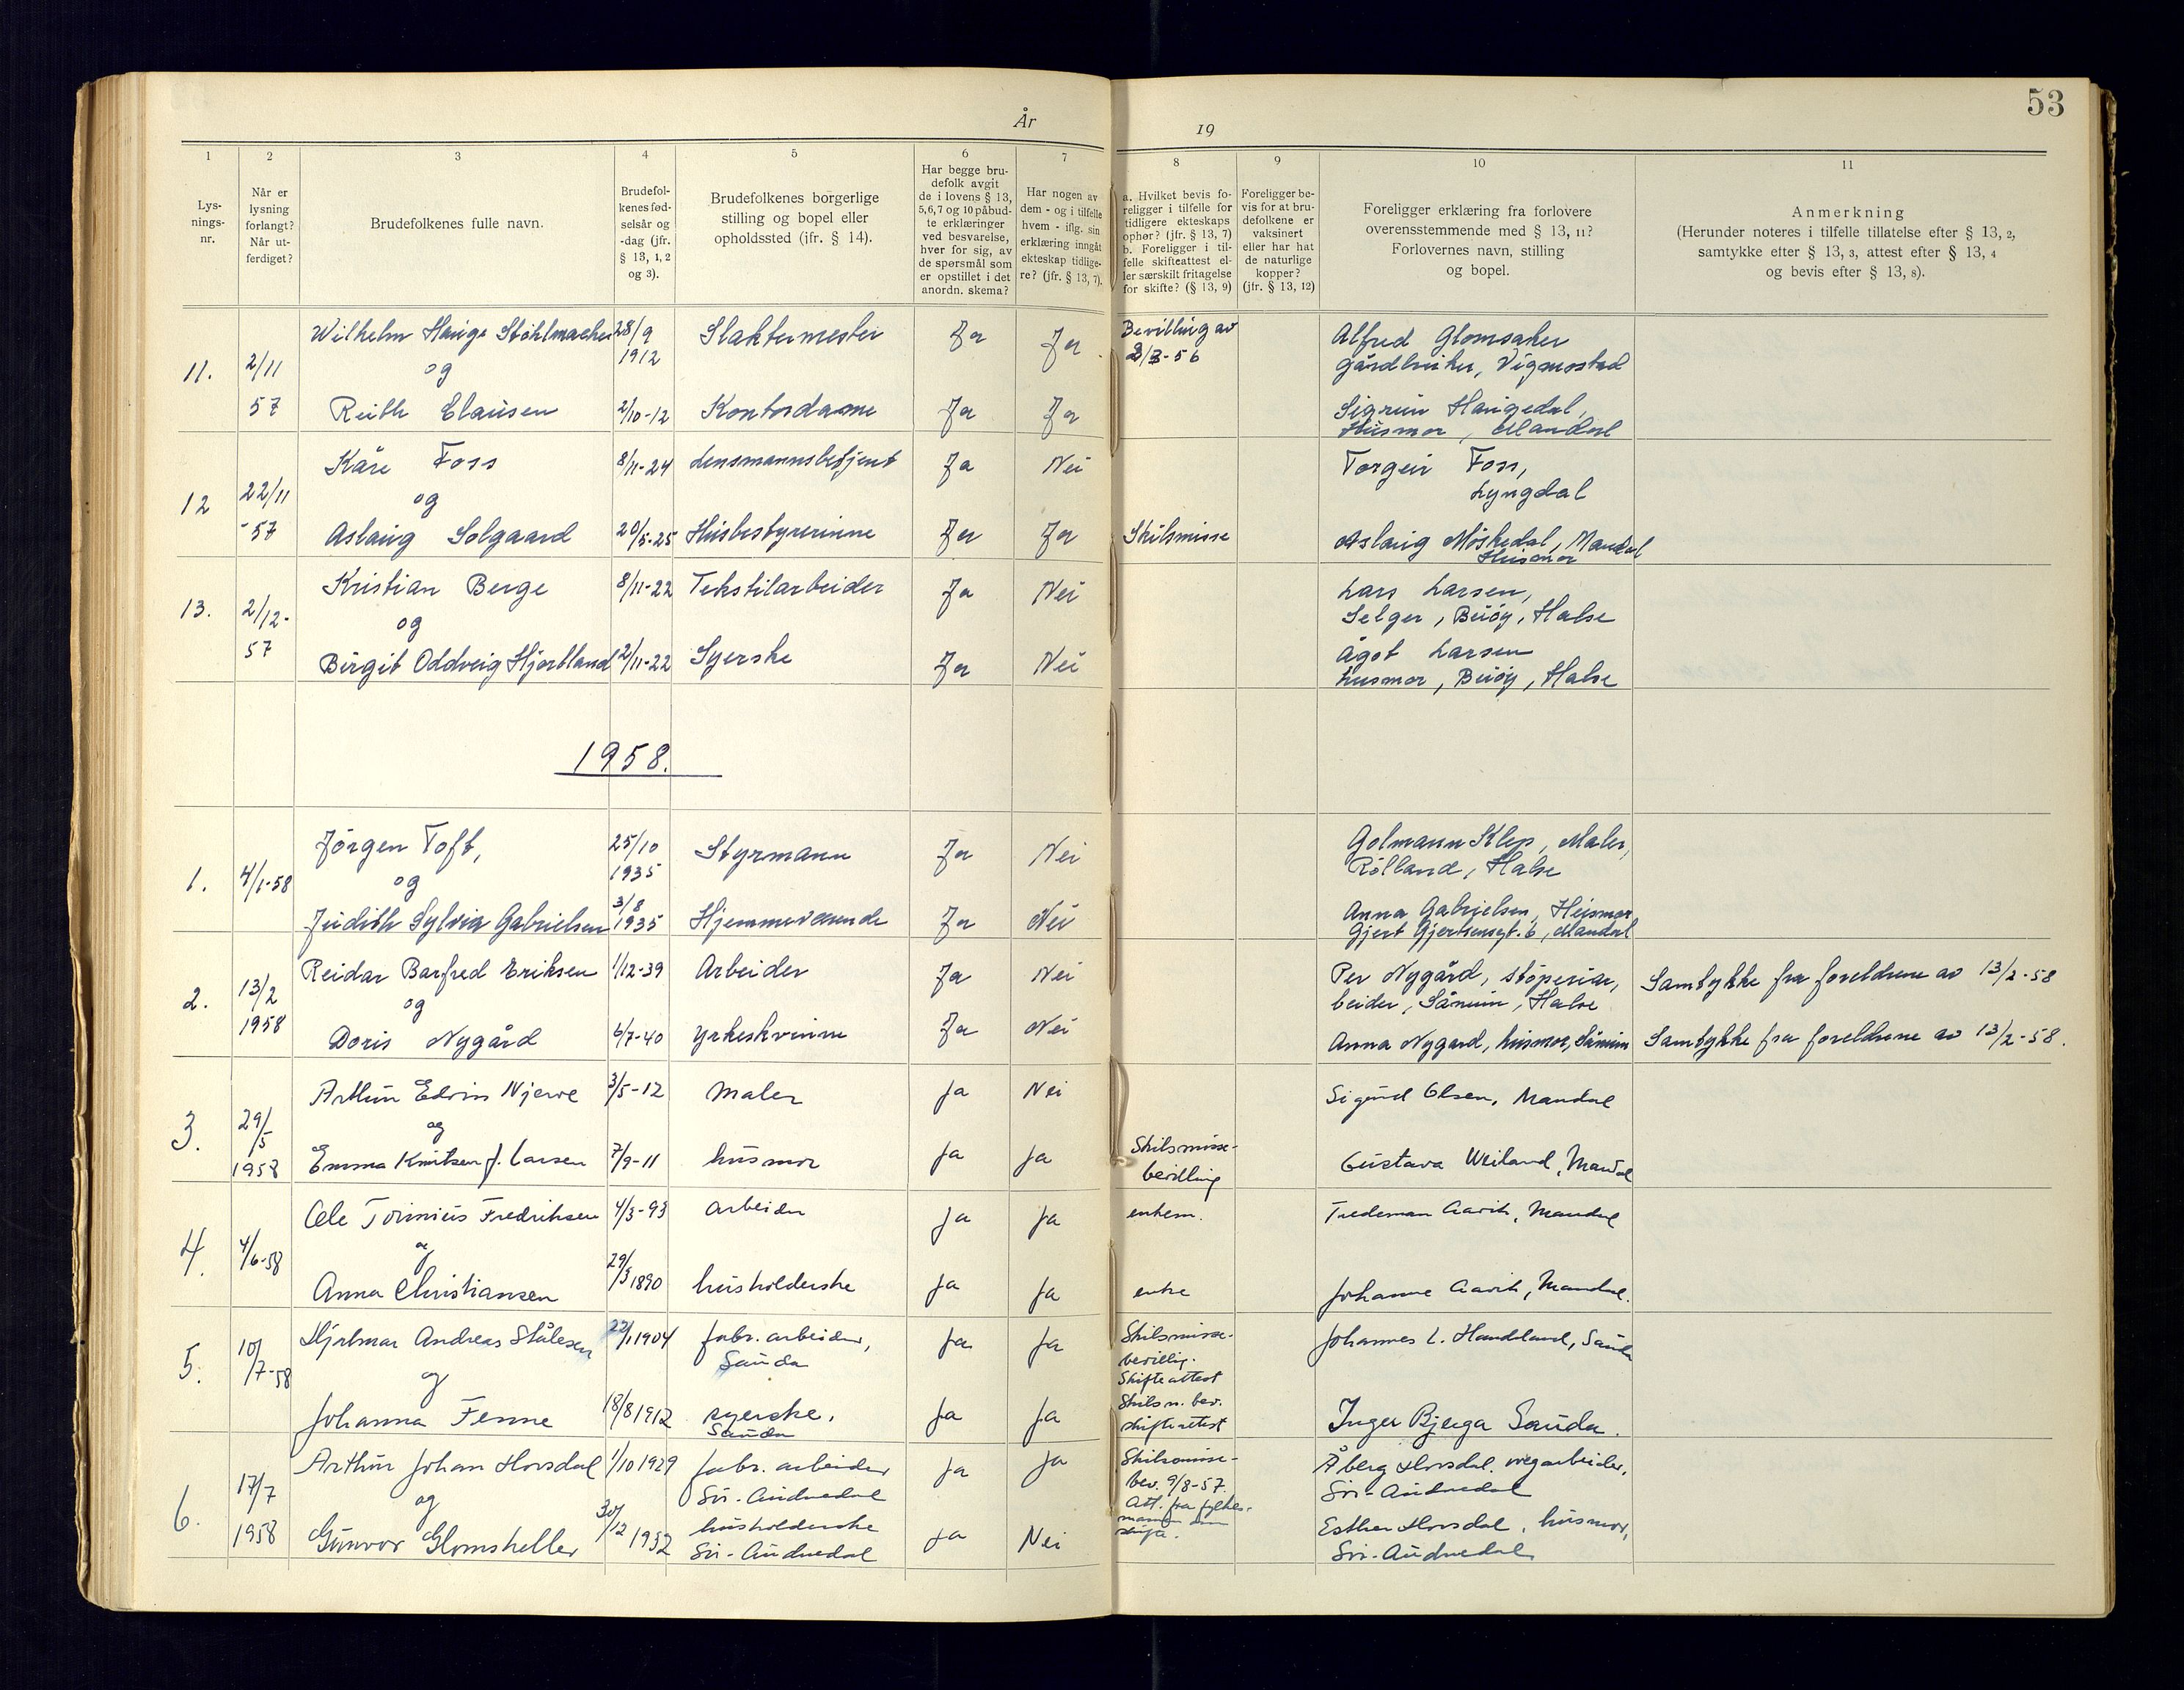 53
År 19
1 2 3 4 5 6 7 8 9 10 11
Lys-
nings-
nr.
Når er
lysning
forlangt?
Når ut-
ferdiget?
Brudefolkenes fulle navn.
Brudefol-
kenes fød-
selsår og
-dag (jfr.
§ 13, 1, 2
og 3).
Brudefolkenes borgerlige
stilling og bopel eller
opholdssted (jfr. § 14).
Har begge bru-
defolk avgit
de i lovens § 13,
5, 6, 7 og 10 påbud-
te erklæringer
ved besvarelse,
hver for sig, av
de spørsmål som
er opstillet i det
anordn. skema?
Har nogen av
dem - og i tilfelle
hvem - iflg. sin
erklæring inngåt
ekteskap tidlige-
re? (jfr. § 13, 7).
a. Hvilket bevis fo-
religger i tilfelle for
tidligere ekteskaps
ophør? (jfr. § 13, 7)
b. Foreligger i til-
felle skifteattest el-
ler særskilt fritagelse
for skifte? (§ 13, 9)
Foreligger be-
vis for at bru-
defolkene er
vaksinert
eller har hat
de naturlige
kopper?
(jfr. § 13, 12)
Foreligger erklæring fra forlovere
overensstemmende med § 13, 11?
Forlovernes navn, stilling
og bopel.
Anmerkning
(Herunder noteres i tilfelle tillatelse efter § 13, 2,
samtykke efter § 13, 3, attest efter § 13, 4
og bevis efter § 13, 8).
11. 2/11 57
Wilhelm Hauge Stohlmacher 28/9 1912 Slaktermester Ja Ja Bevilling av 2/3-56 Alfred Glomsaker
gårdbruker, Vigmostad
og
Ruth Clausen 2/10-12 Kontordame Ja Ja Sigrun Haugedal,
Husmor, Mandal
12 22/11 -57
Kåre Foss 8/11-24 Lensmannsbetjent Ja Nei Torgeir Foss,
Lyngdal
og
Aslaug Solgaard 20/5-25 Husbestyrerinne Ja Ja Skilsmisse Aslaug Møskedal, Mandal
Husmor
13. 2/12- 57
Kristian Berge 8/11-22 Tekstilarbeider Ja Nei Lars Larsen,
Selger, Buøy, Halse
og
Birgit Oddveig Hjortland 2/11-22 Syerske Ja Nei Ågot Larsen
husmor, Buøy, Halse
1958.
1. 4/1-58
Jörgen Toft, 25/10 1935 Styrmann Ja Nei Golmann Klep, Maler,
Rölland, Halse
og
Judith Sylvia Gabrielsen 3/8 1935 Hjemmeværende Ja Nei Anna Gabrielsen, Husmor
Gjert Gjertsensgt. 6, Mandal
2. 13/2 1958
Reidar Barfred Eriksen 1/12-39 Arbeider Ja Nei Per Nygård, støperiar,
beider, Sånum, Halse Samtykke fra foreldrene av 13/2-58
og
Doris Nygård 6/7-40 yrkeskvinne Ja Nei Anna Nygard, husmor, Sånum Samtykke fra foreldrene av 13/2-58.
3. 29/5 1958
Arthur Edvin Njerve 3/5-12 maler Ja Nei Sigurd Olsen, Mandal
og
Emma Knutsen f. Larsen 7/9-11 husmor Ja Ja Skilsmisse-
bevilling Gustava Weiland, Mandal
4. 4/6-58
Ole Tominius Fredriksen 4/3-93 arbeider Ja Ja enkem. Tredeman Aarik, Mandal
og
Anna Christiansen 29/3 1890 husholderske Ja Ja enke Johanne Aarik, Mandal.
5. 10/7-58
Hjalmar Andreas Stålesen 22/1 1904 fabr. arbeider,
Sauda Ja Ja Skilsmisse-
bevillig.
Skifteattest Johannes L. Handeland, Sauda
og
Johanna Fenne 18/8 1912 syerske,
Sauda Ja Ja Skilsm. bev.
skifteattest Inger Bjerga Sauda.
6. 17/7 1958
Arthur Johan Horsdal 1/10 1929 fabr. arbeider
Sør-Audnedal Ja Ja Skilsmisse-
bev. 9/8-57.
Att. fra fylkes-
mannen om
skifte. Åberg Horsdal. vegarbeider,
Sør-Audnedal
og
Gunvor Glomsheller 30/12 1932 husholderske
Sør-Audnedal Ja Nei Esther Horsdal, husmor,
Sør-Audnedal